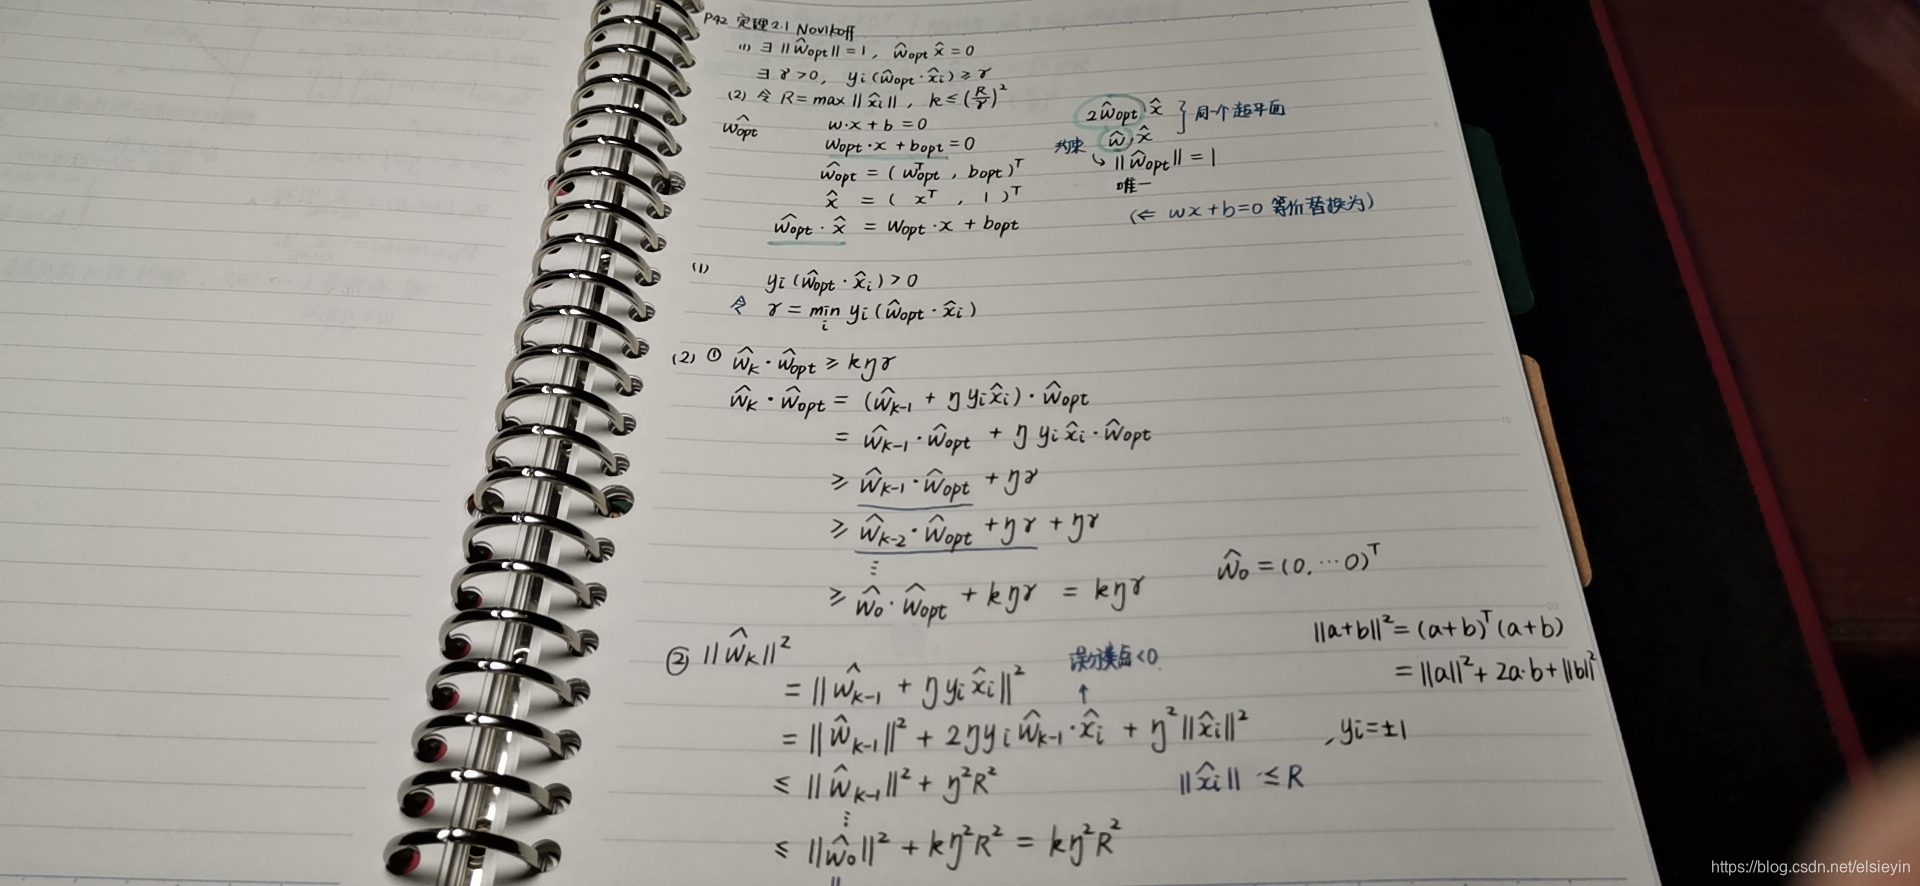 P42 定理2.1 Novikoff
(1) ∃ ||ŵopt|| = 1, ŵopt x̂ = 0
∃ γ > 0, yi(ŵopt · x̂i) ≥ γ
(2) 令 R = max ||x̂i||, k ≤ (R/γ)²
ŵopt
w·x + b = 0
wopt·x + bopt = 0
ŵopt = (wopt^T, bopt)^T
x̂ = (x^T, 1)^T
ŵopt · x̂ = wopt·x + bopt
2ŵopt, x̂
ŵ, x̂
} 同一个超平面
约束
↳ ||ŵopt|| = 1
唯一
(⇐ wx+b=0 等价替换为)
(1) yi(ŵopt · x̂i) > 0
令 γ = min_i yi(ŵopt · x̂i)
(2) ① ŵk · ŵopt ≥ kηγ
ŵk · ŵopt = (ŵk-1 + ηyix̂i) · ŵopt
= ŵk-1 · ŵopt + ηyix̂i · ŵopt
≥ ŵk-1 · ŵopt + ηγ
≥ ŵk-2 · ŵopt + ηγ + ηγ
⋮
≥ ŵ0 · ŵopt + kηγ = kηγ
ŵ0 = (0, ⋯ 0)^T
② ||ŵk||²
= ||ŵk-1 + ηyix̂i||²
误分类点<0
↑
= ||ŵk-1||² + 2ηyiŵk-1 · x̂i + η²||x̂i||²
≤ ||ŵk-1||² + η²R²
⋮
≤ ||ŵ0||² + kη²R² = kη²R²
||a+b||² = (a+b)^T(a+b)
= ||a||² + 2a·b + ||b||²
, yi = ±1
||x̂i|| ≤ R
https://blog.csdn.net/elsieyin